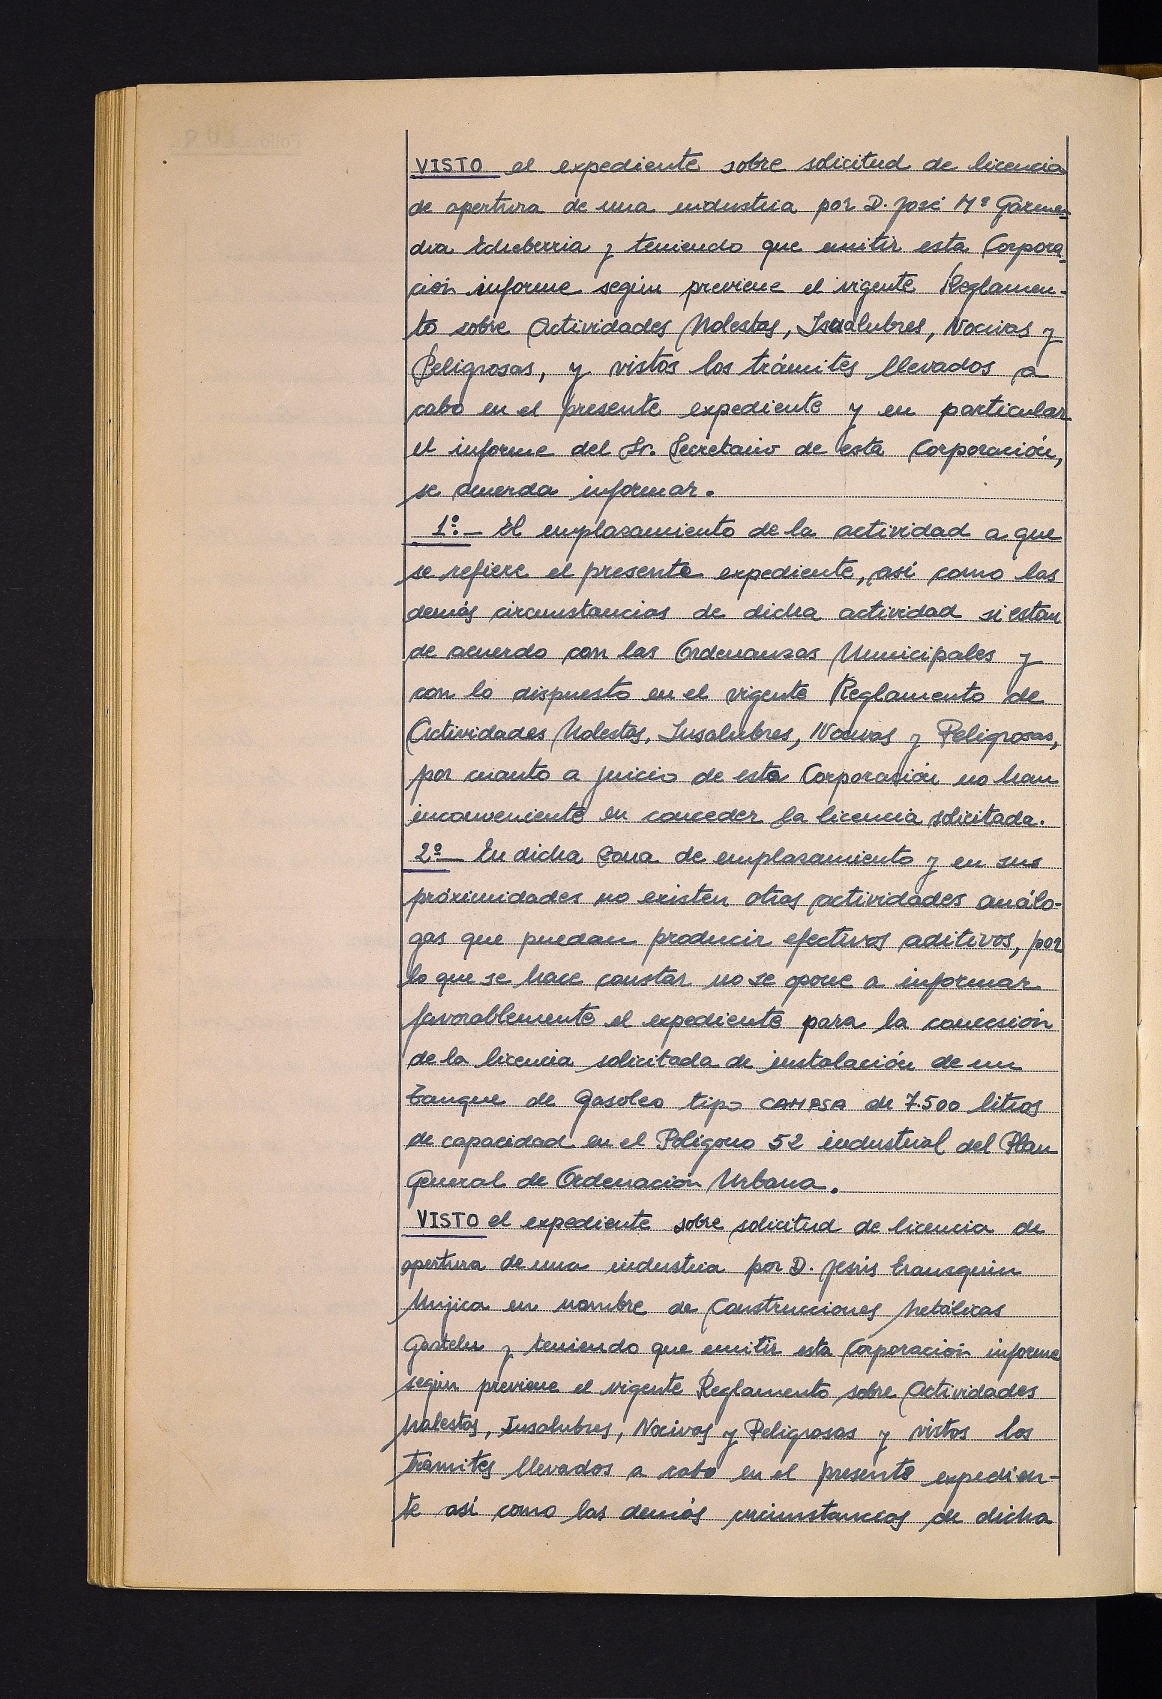 VISTO el expediente sobre solicitud de licencia
de apertura de una industria por D. José Mª Garmen-
dia Echeberria y teniendo que emitir esta Corpora-
ción informe según previene el vigente Reglamen-
to sobre Actividades Molestas, Insalubres, Nocivas y
Peligrosas, y vistos los trámites llevados a
cabo en el presente expediente y en particular
el informe del Sr. Secretario de esta Corporación,
se acuerda informar.
1º.- El emplasamiento de la actividad a que
se refiere el presente expediente, así como las
demás circunstancias de dicha actividad si estan
de acuerdo con las Ordenansas Municipales y
con lo dispuesto en el vigente Reglamento de
Actividades Molestas, Insalubres, Nocivas y Peligrosas,
por cuanto a juicio de esta Corporación no han
inconveniente en conceder la licencia solicitada.
2º- En dicha zona de emplasamiento y en sus
próximidades no existen otras actividades análo-
gas que puedan producir efectivos aditivos, por
lo que se hace constar no se opone a informar
favorablemente el expediente para la concesión
de la licencia solicitada de instalación de un
Tanque de Gasoleo tipo CAMPSA de 7.500 litros
de capacidad en el Poligono 52 industrial del Plan
General de Ordenación Urbana.
VISTO el expediente sobre solicitud de licencia de
apertura de una industria por D. Jesús Eransquin
Mujica en nombre de Construcciones Metálicas
Gastelu y teniendo que emitir esta Corporación informe
según previene el vigente Reglamento sobre Actividades
Molestas, Insalubres, Nocivas y Peligrosas y vistos los
trámites llevados a cabo en el presente expedien-
te así como las demás circunstancias de dicha